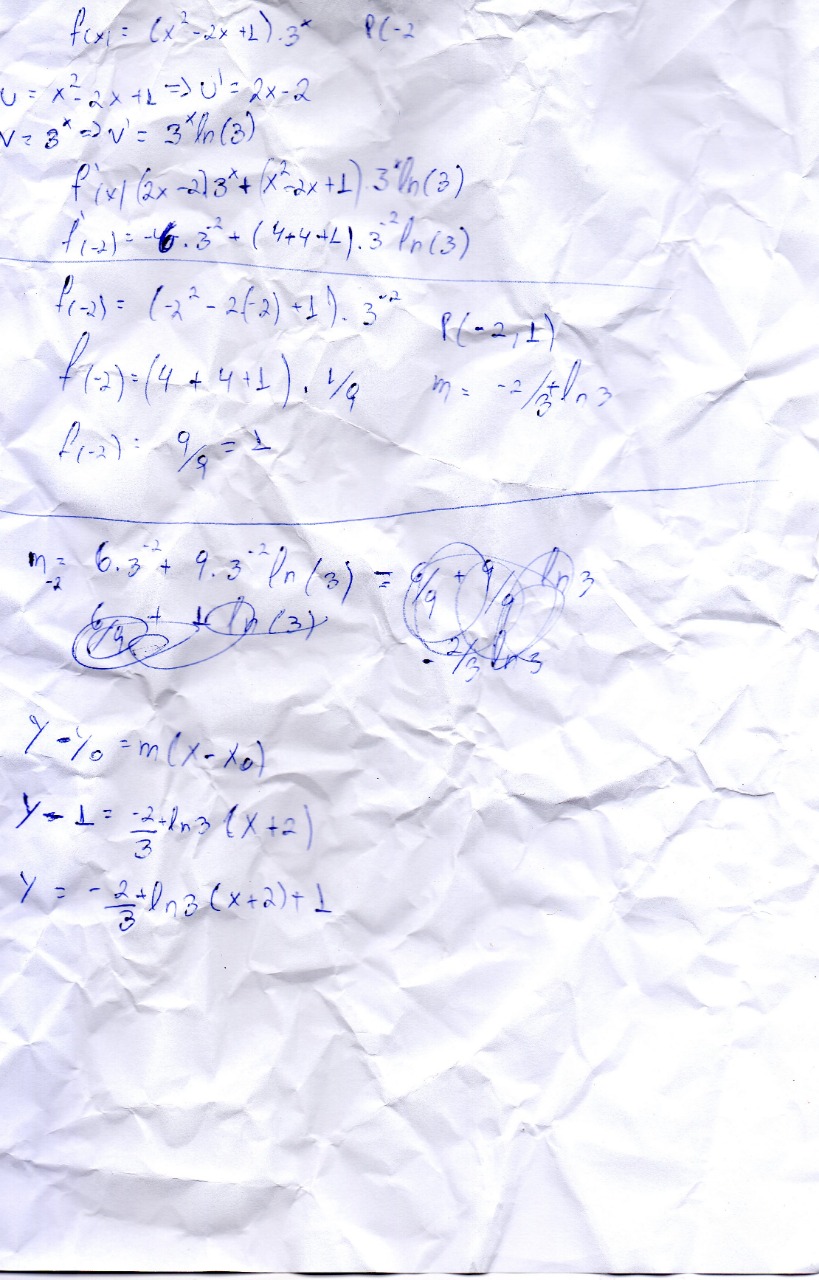 f(x) = (x² - 2x + 1) . 3ˣ P(-2
U = x² - 2x + 1 => U' = 2x - 2
V = 3ˣ => V' = 3ˣ ln(3)
f'(x) (2x - 2) 3ˣ + (x² - 2x + 1) . 3ˣ ln(3)
f'(-2) = -6 . 3⁻² + (4+4+1) . 3⁻² ln(3)
f(-2) = (-2² - 2(-2) + 1) . 3⁻²
P(-2, 1)
f(-2) = (4 + 4 + 1) . 1/9
m = -2/3 + ln 3
f(-2) = 9/9 = 1
m-2 = 6 . 3⁻² + 9 . 3⁻² ln(3) = 6/9 + 9/9 ln 3
6/9 + 1 ln(3)
- 2/3 ln 3
y - y₀ = m(x - x₀)
y - 1 = -2/3 + ln3 (x + 2)
y = -2/3 + ln3 (x + 2) + 1